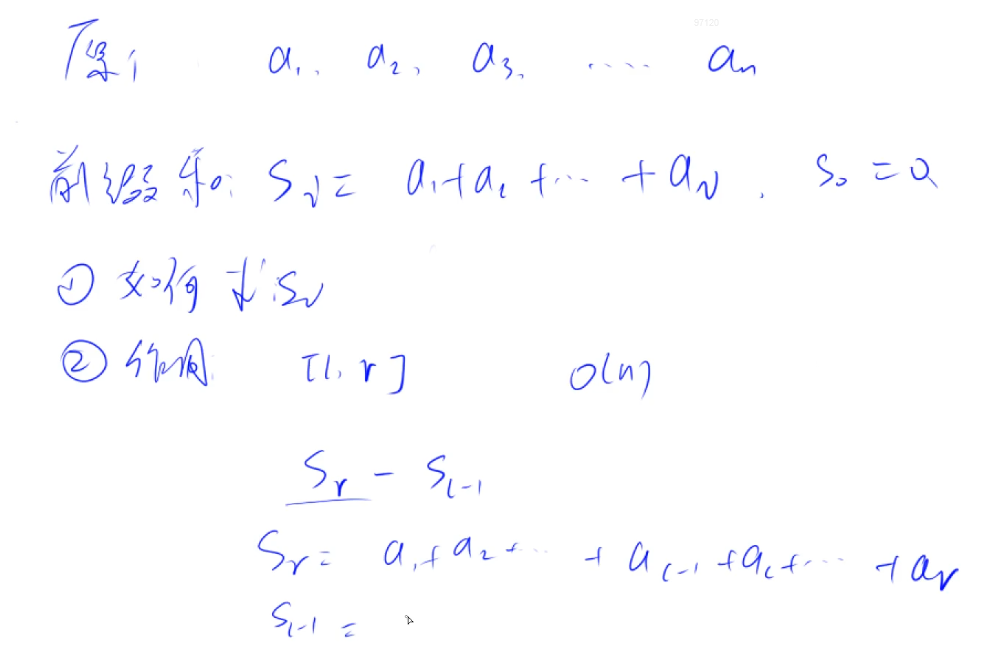 97120
原 a₁, a₂, a₃, ..... aₙ
前缀和: Sᵢ = a₁+a₂+...+aᵢ. S₀ = 0
① 如何求 Sᵢ
② 作用: [l, r] O(n)
Sᵣ - Sₗ₋₁
Sᵣ = a₁+a₂+...+aₗ₋₁+aₗ+...+aᵣ
Sₗ₋₁ =